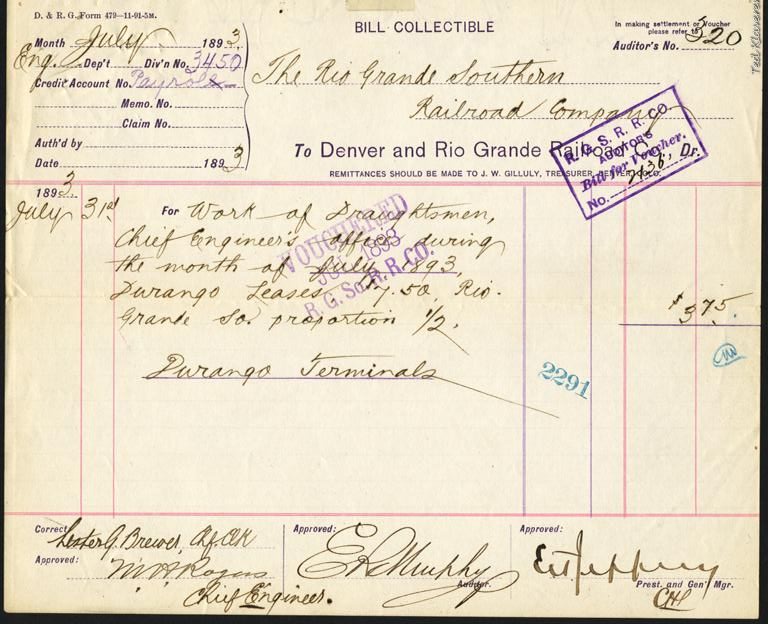 D. & R. G. Form 479—11-91-5M.
BILL COLLECTIBLE
In making settlement or Voucher please refer to
Auditor's No. 520
Month July 1893
Eng. Dep't Div'n No. 3450
Credit Account No. Payrolls
Memo. No.
Claim No.
Auth'd by
Date 1893
The Rio Grande Southern
Railroad Company
To Denver and Rio Grande Railroad Co., Dr.
REMITTANCES SHOULD BE MADE TO J. W. GILLULY, TREASURER, DENVER, COLO.
R. G. S. R. R. CO.
AUDITOR'S
Bill for Voucher.
No. 7136
1893
July 31st For Work of Draughtsmen,
Chief Engineer's office during
the month of July 1893,
Durango Leases $7.50, Rio.
Grande So. proportion 1/2. $3.75.
VOUCHERED
1893
R. G. So. R. R. CO.
Durango Terminals
2291
Correct:
Lester G. Brewer, Chf. Clk
Approved:
Chief Engineer.
Approved:
Murphy
Auditor.
Approved:
E T Jeffery
Prest. and Gen'l Mgr.